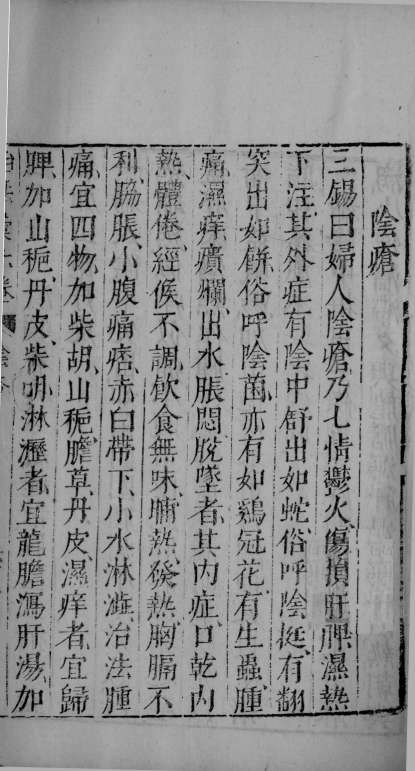 陰瘡
三錫曰婦人陰瘡乃七情鬱火傷損肝脾濕熱
下注其外症有陰中舒出如蛇俗呼陰挺有翻
突出如餅俗呼陰菌亦有如鷄冠花有生蟲腫
痛濕痒㿉爛出水脹悶脫墜者其內症口乾內
熱體倦經候不調飲食無味晡熱發熱胸膈不
利脇脹小腹痛痞赤白帶下小水淋澁治法腫
痛宜四物加柴胡山梔膽草丹皮濕痒者宜歸
脾加山梔丹皮柴胡淋瀝者宜龍膽瀉肝湯加